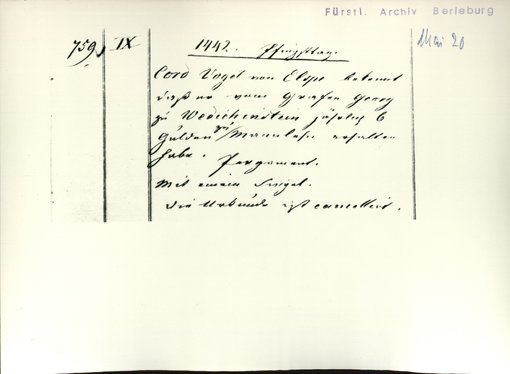 Fürstl. Archiv Berleburg
759, IX 1442. Pfingsttag. Mai 20
Cord Vogel von Elspe bekennt
daß er vom Grafen Georg
zu Wittgenstein jährlich 6
Gulden zu Mannlehn erhalten
habe. Pergament.
Mit einem Siegel.
Die Urkunde ist cancellirt.